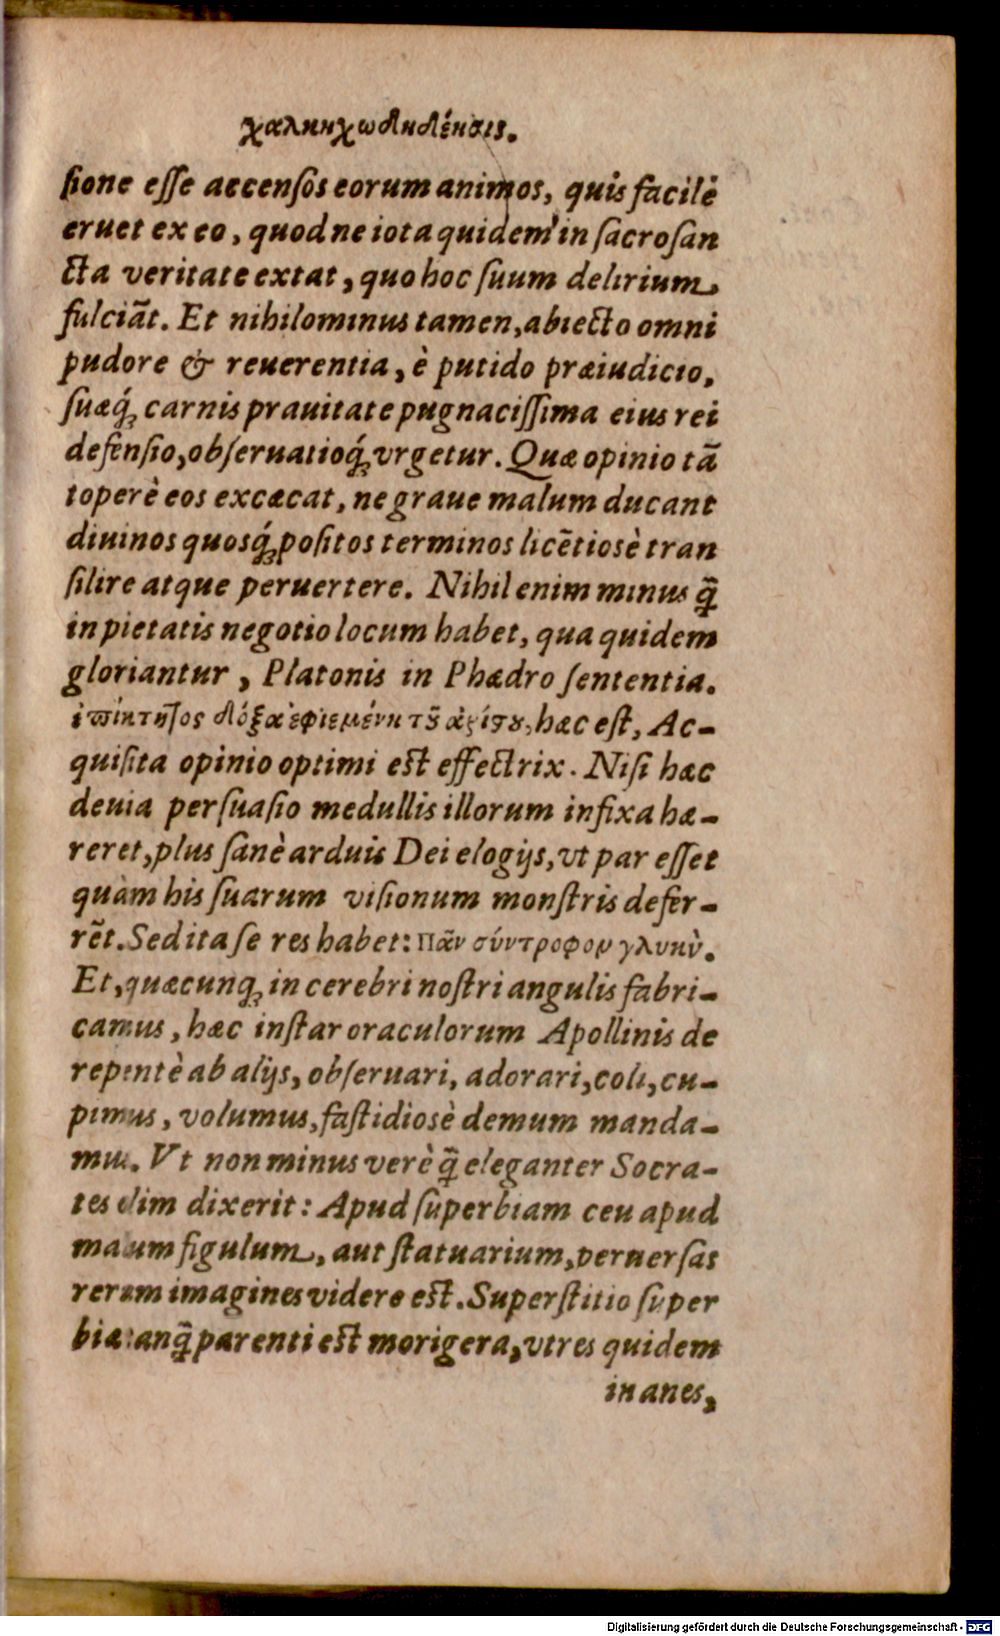 χαλκηχωδηδένσις.
sione esse accensos eorum animos, quis facilè
eruet ex eo, quod ne iota quidem in sacrosan
cta veritate extat, quo hoc suum delirium
fulciāt. Et nihilominus tamen, abiecto omni
pudore & reuerentia, è putido præiudicio,
suæq́; carnis prauitate pugnacissima eius rei
defensio, obseruatioq́; vrgetur. Quæ opinio tā
toperè eos excæcat, ne graue malum ducant
diuinos quosq́; positos terminos licētiosè tran
silire atque peruertere. Nihil enim minus q̄
in pietatis negotio locum habet, qua quidem
gloriantur, Platonis in Phædro sententia.
ἐπίκτητος δόξα ἐφιεμένη τοῦ ἀρίστου, hæc est, Ac-
quisita opinio optimi est effectrix. Nisi hæc
deuia persuasio medullis illorum infixa hæ-
reret, plus sanè arduis Dei elogijs, vt par esset
quàm his suarum visionum monstris defer-
rēt. Sed ita se res habet: Πᾶν σύντροφον γλυκὺ.
Et, quæcunq; in cerebri nostri angulis fabri-
camus, hæc instar oraculorum Apollinis de
repentè ab alijs, obseruari, adorari, coli, cu-
pimus, volumus, fastidiosè demum manda-
mus. Vt non minus verè q̄ eleganter Socra-
tes olim dixerit: Apud superbiam ceu apud
malum figulum, aut statuarium, peruersas
rerum imagines videre est. Superstitio super
biæ tanq̄ parenti est morigera, vt res quidem
inanes,
Digitalisierung gefördert durch die Deutsche Forschungsgemeinschaft - DFG